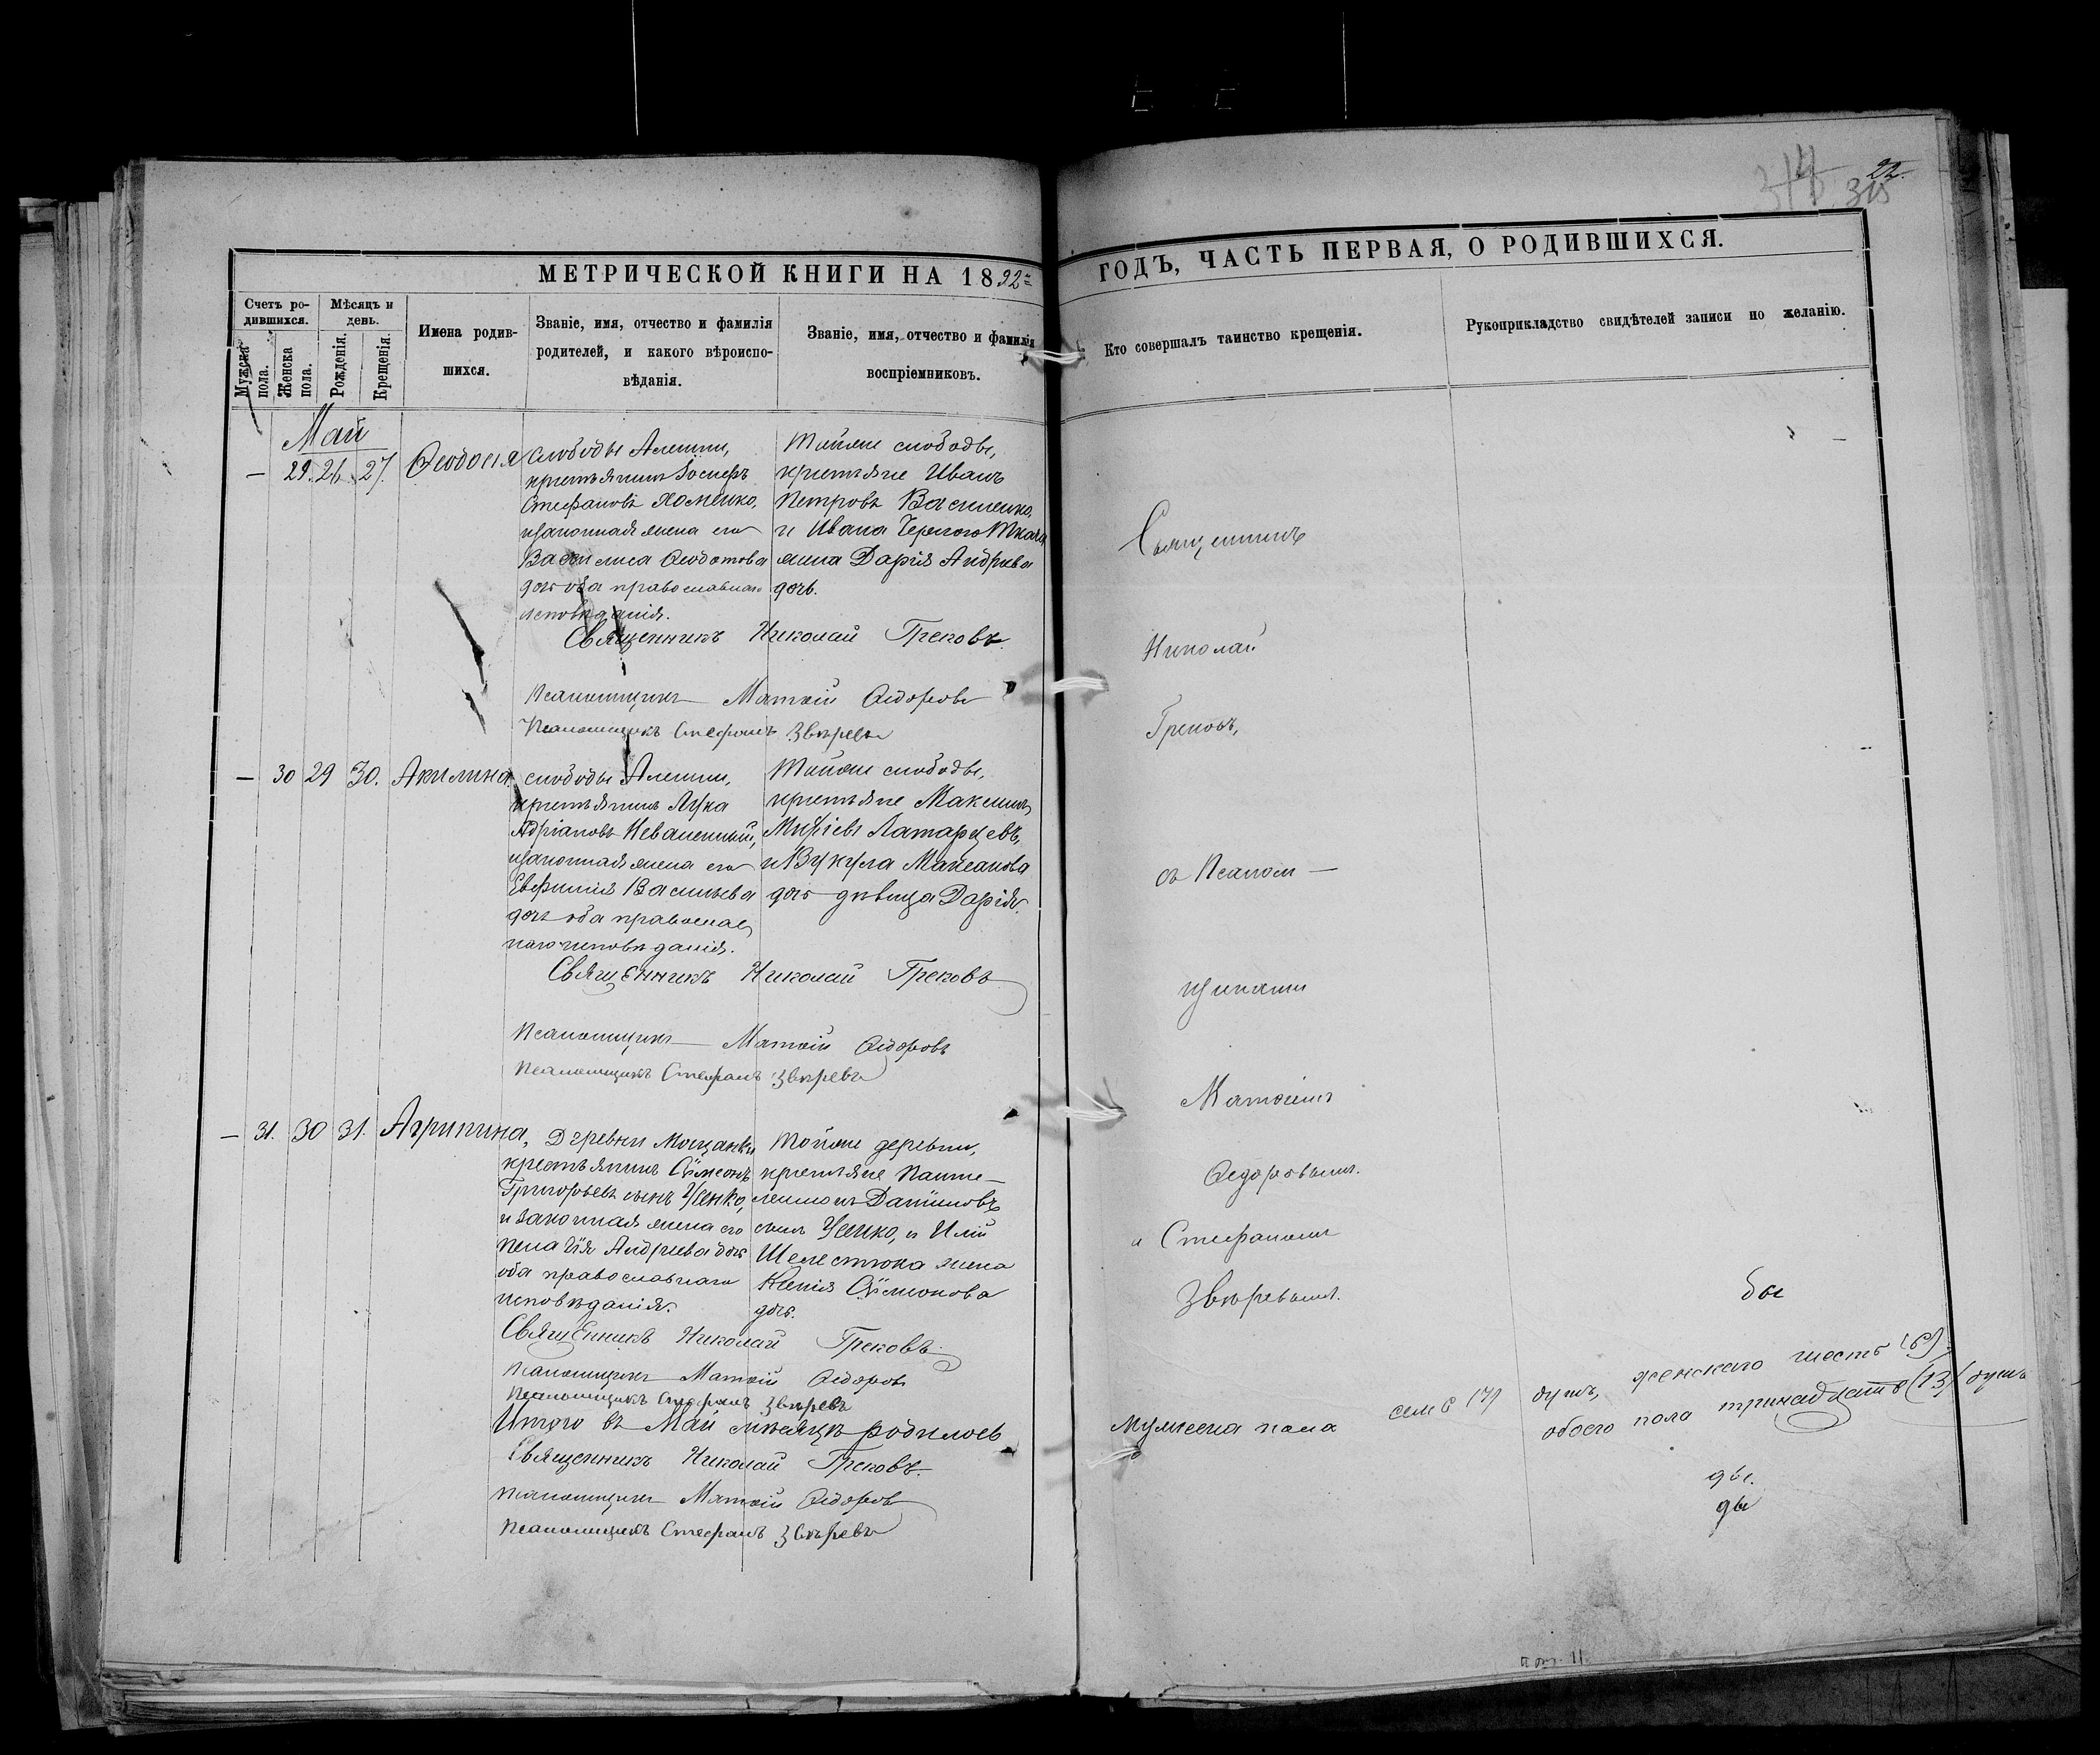 22.
315
МЕТРИЧЕСКОЙ КНИГИ НА 1892
ГОДЪ, ЧАСТЬ ПЕРВАЯ, О РОДИВШИХСЯ.
Счетъ ро-
дившихся.
Мужска пола.
Женска пола.
Мѣсяцъ и день.
Рожденія.
Крещенія.
Имена родив-
шихся.
Званіе, имя, отчество и фамилія
родителей, и какого вѣроиспо-
вѣданія.
Званіе, имя, отчество и фамилія
воспріемниковъ.
Кто совершалъ таинство крещенія.
Рукоприкладство свидѣтелей записи по желанію.
Май
— 29. 26. 27. Ѳеодосія
слободы Алешни,
крестьянинъ
Стефановъ Хоменко,
и законная жена его
Василиса Ѳеодотова
дочь оба православнаго
исповѣданія.
Тойже слободы,
крестьяне Иванъ
Петровъ Василенко,
и Ивана
жена Дарія Андреева
дочь.
Священникъ Николай Грековъ.
Псаломщикъ Матѳій Ѳедоровъ
Псаломщикъ Стефанъ Звѣревъ
— 30 29 30. Акилина
слободы Алешни,
крестьянинъ Лука
Адріановъ
и законная жена его
Евфимія Васильева
дочь оба православ
наго исповѣданія.
Тойже слободы,
крестьяне Максимъ
и Вукула
дочь дѣвица Дарія.
Священникъ Николай Грековъ
Псаломщикъ Матѳій Ѳедоровъ
Псаломщикъ Стефанъ Звѣревъ
— 31. 30 31. Агрипина,
Деревни
крестьянинъ Сѵмеонъ
Григорьевъ сынъ Усенко,
и законная жена его
Пелагія Андреева дочь
оба православнаго
исповѣданія.
Тойже деревни,
крестьяне Панте—
леимонъ Даніиловъ
сынъ Усенко, и Иліи
жена
Ксенія Сѵмеонова
дочь.
Священникъ Николай Грековъ.
Псаломщикъ Матѳій Ѳедоровъ
Псаломщикъ Стефанъ Звѣревъ
Итого въ Май мѣсяцѣ родилось
Священникъ Николай Грековъ.
Псаломщикъ Матѳій Ѳедоровъ
Псаломщикъ Стефанъ Звѣревъ
Священникъ
Николай
Грековъ,
съ Псалом—
щиками
Матѳіемъ
Ѳедоровымъ.
и Стефаномъ
Звѣревымъ.
мужеска пола семь (7) душъ, женскаго шесть (6),
обоего пола тринадцать (13) душъ